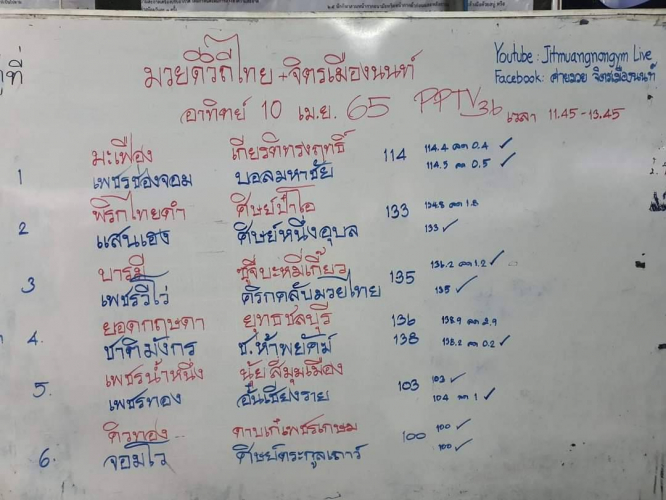 มวยดีวิถีไทย + จิตรเมืองนนท์
อาทิตย์ 10 เม.ย. 65 PPTV36 เวลา 11.45 - 13.45
Youtube : Jitmuangnongym Live
Facebook : ค่ายมวย จิตรเมืองนนท์
คู่ที่
มะเฟือง เกียรติทรงฤทธิ์ 114 114.4 ลด 0.4 ✓
1 เพชรช่องจอม บอลมหาชัย 114.5 ลด 0.5 ✓
พริกไทยดำ ศิษย์ป๋าโอ 133 134.8 ลด 1.8
2 แสนเฮง ศิษย์หนึ่งอุบล 133 ✓
บารมี ซุ้จีบะหมี่เกี๊ยว 135 136.2 ลด 1.2 ✓
3 เพชรวีไว่ ศิรกคลับมวยไทย 135 ✓
ยอดกฤษดา ยุทธชลบุรี 136 138.9 ลด 2.9
4. ชาติมังกร ช.ห้าพยัคฆ์ 138 138.2 ลด 0.2 ✓
เพชรน้ำหนึ่ง นุ้ยสี่มุมเมือง 103 103 ✓
5. เพชรทอง อั๋นเชียงราย 104 ลด 1 ✓
คิวทอง ดาบเก๋เพชรเกษม 100 100 ✓
6. จอมโว ศิษย์ตระกูลเถาว์ 100 ✓